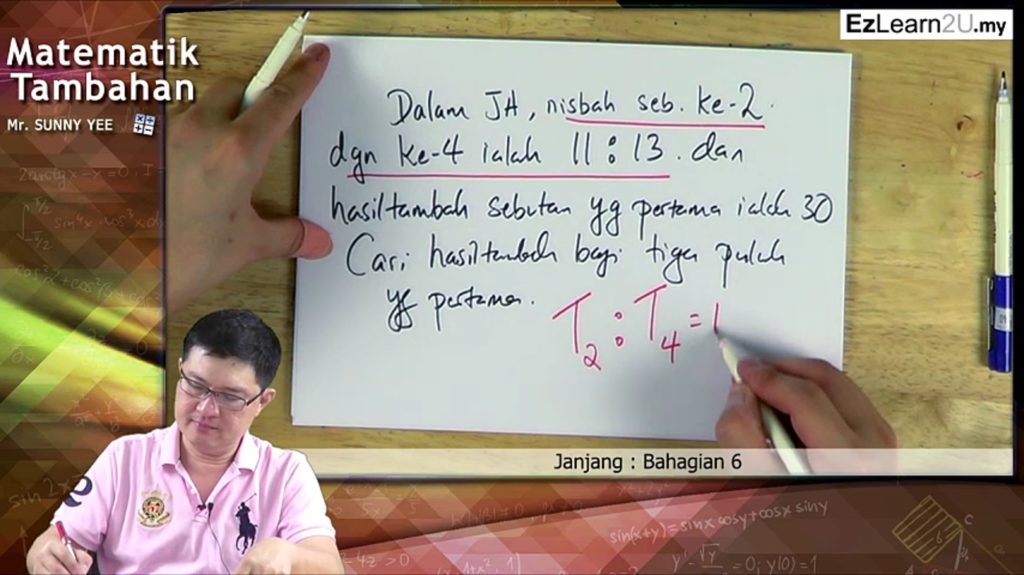 EzLearn2U.my
Matematik
Tambahan
Mr. SUNNY YEE
Dalam JA, nisbah seb. ke-2
dgn ke-4 ialah 11:13. dan
hasiltambah sebutan yg pertama ialah 30
Cari hasiltambah bagi tiga puluh
yg pertama.
T2 : T4 = 1
Janjang : Bahagian 6
sin(x+y)=sinx cosy+cosx siny